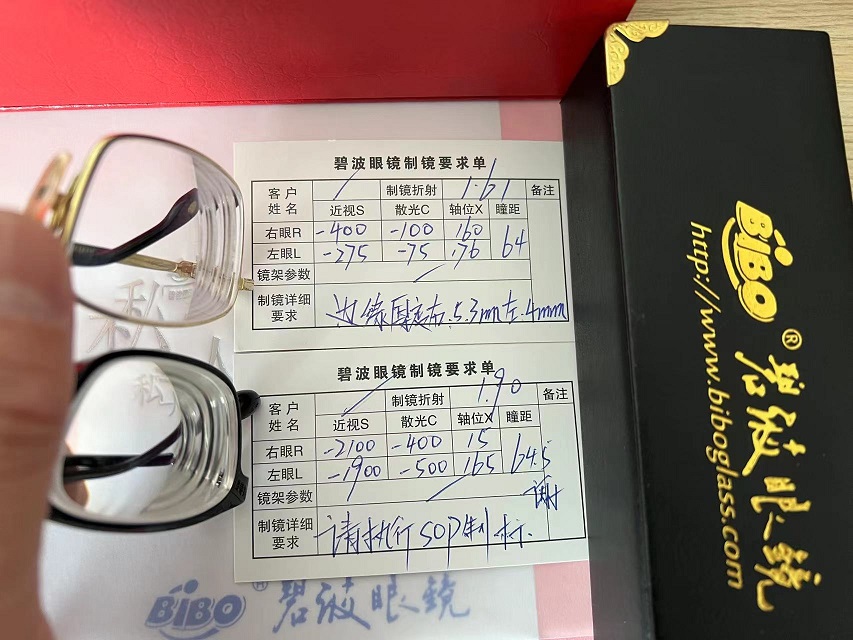 碧波眼镜制镜要求单
客户姓名 / 制镜折射 1.61 备注
近视S 散光C 轴位X 瞳距
右眼R -400 -100 160 64
左眼L -275 -75 176
镜架参数 /
制镜详细要求 边缘厚度右.5.3mm左.4mm
碧波眼镜制镜要求单
客户姓名 / 制镜折射 1.90 备注
近视S 散光C 轴位X 瞳距
右眼R -2100 -400 15 64.5
左眼L -1900 -500 165
镜架参数 / 谢
制镜详细要求 请执行SOP制标.
BiBO® 碧波眼镜
BiBO® 碧波眼镜
http://www.biboglass.com